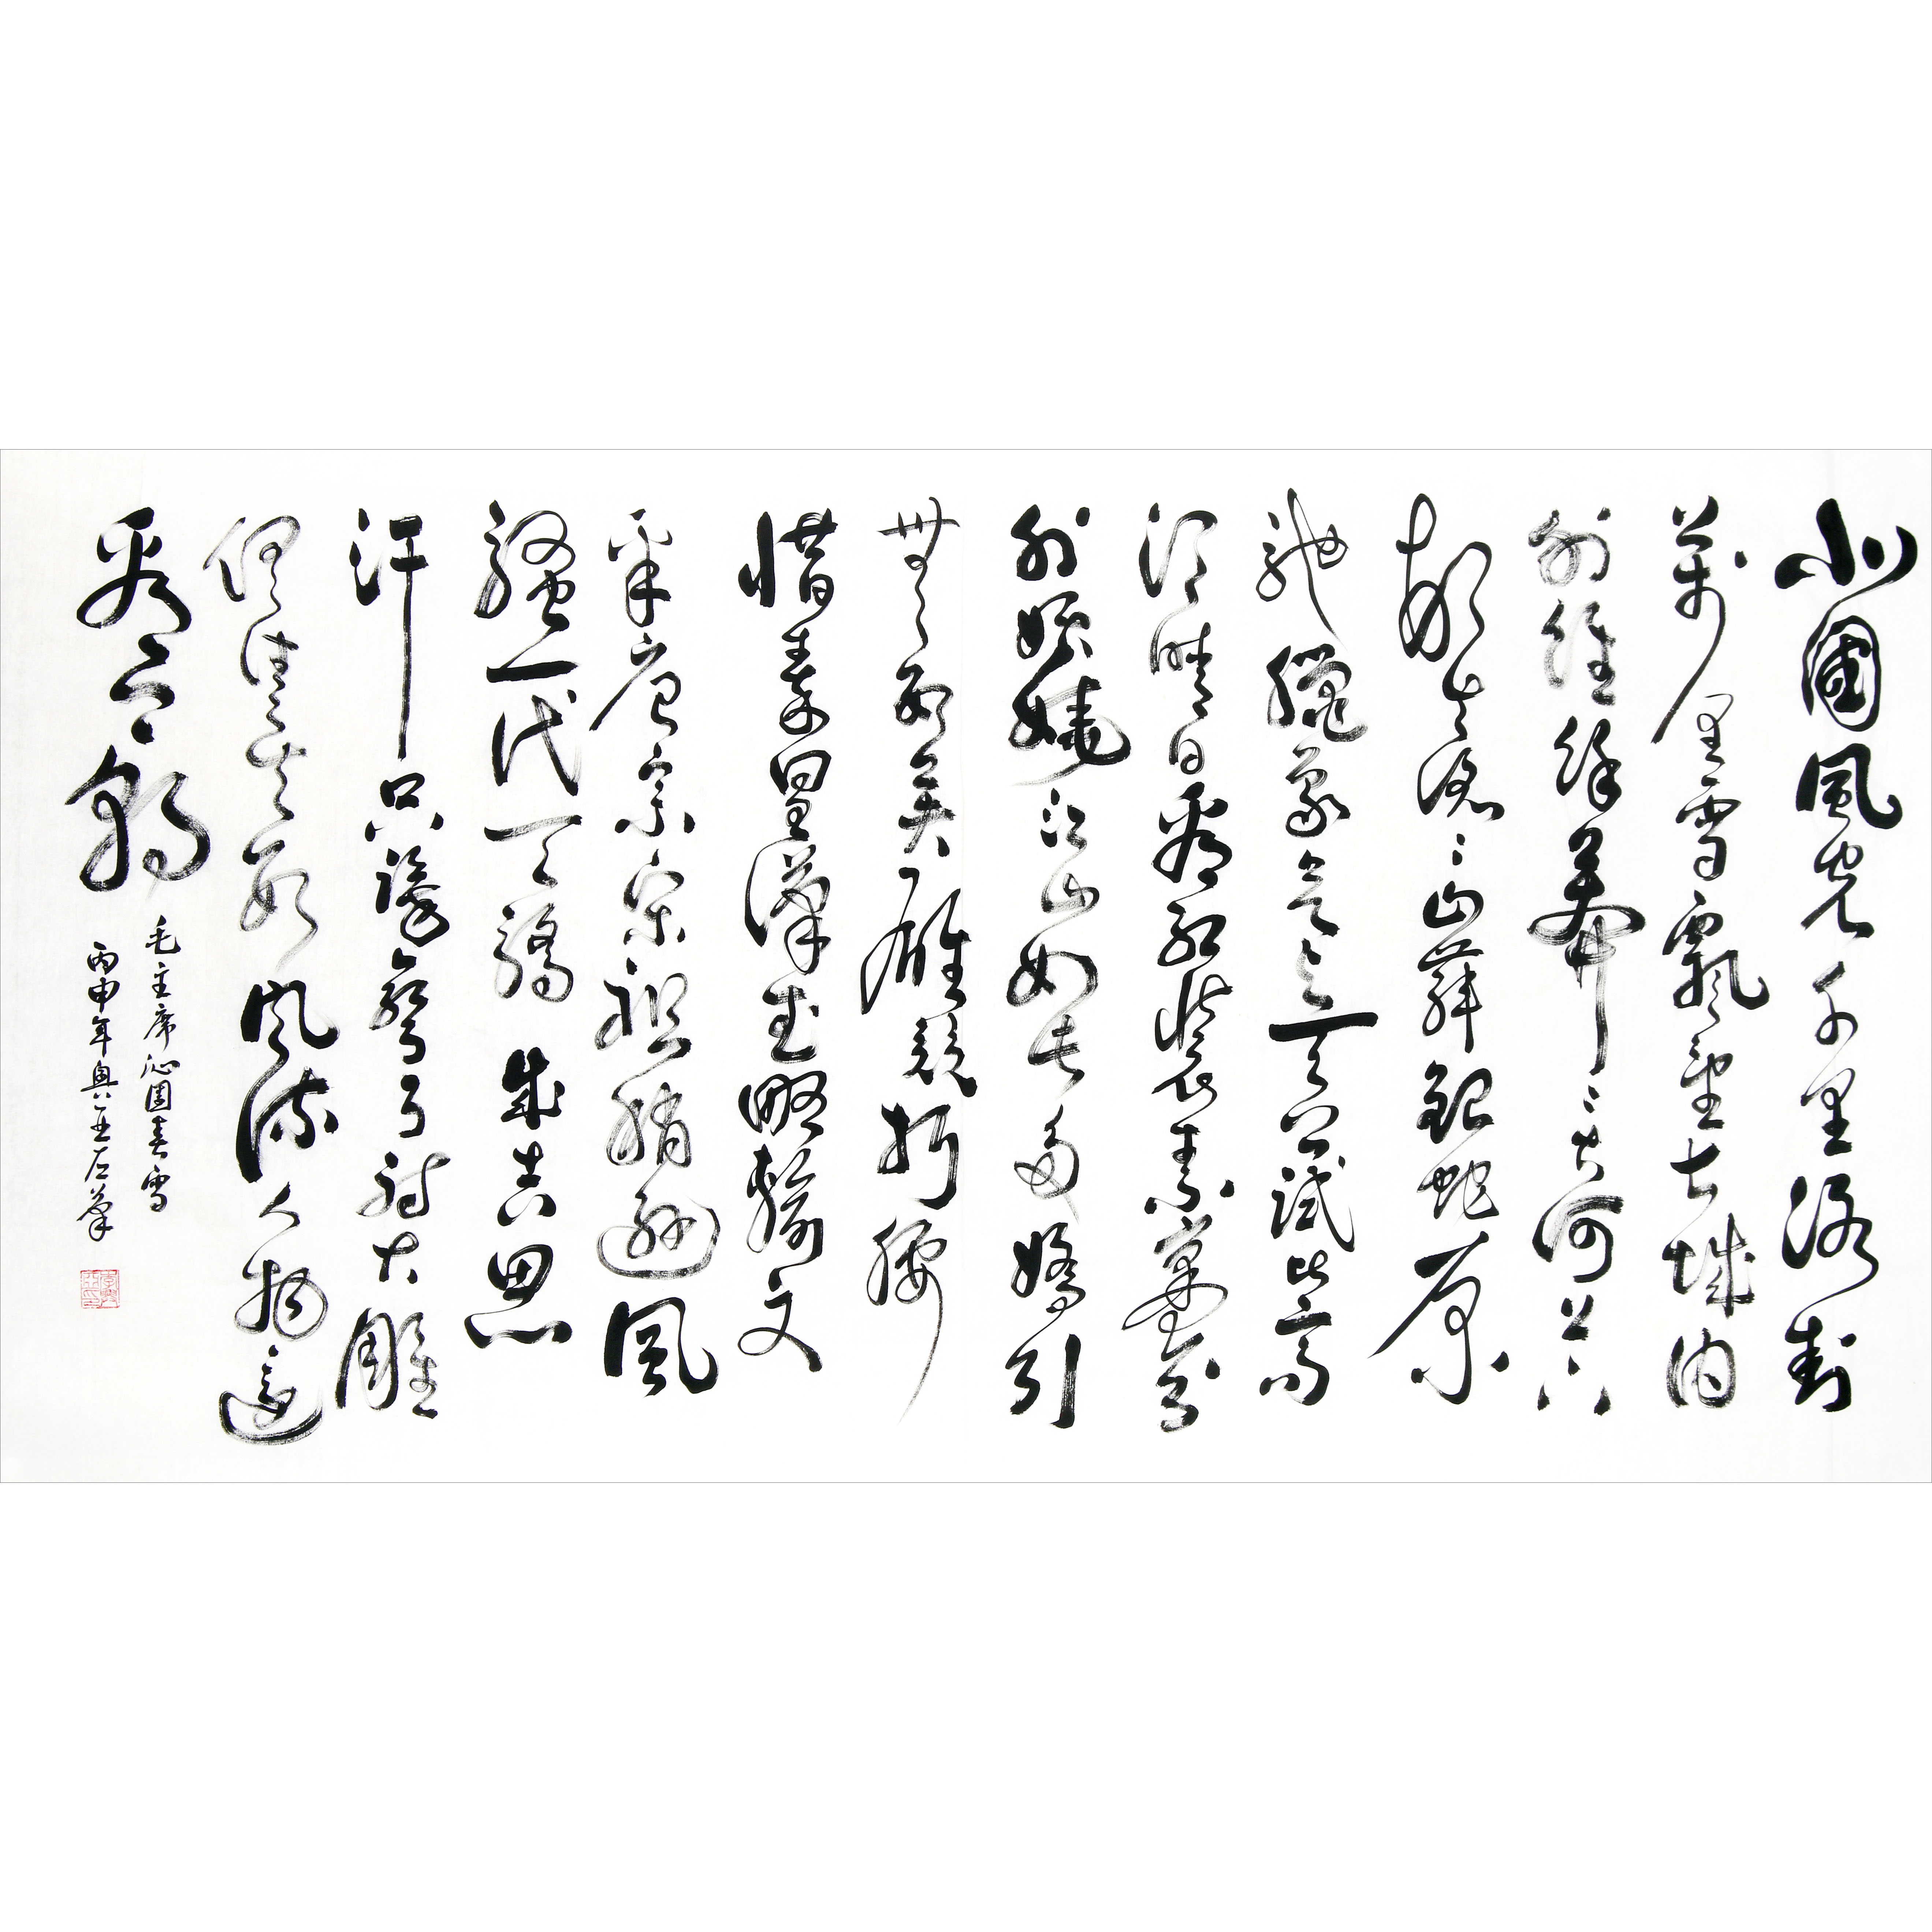 北國風光千里冰封
萬里雪飄望長城內
外惟餘莽〻大河上下
頓失滔〻山舞銀蛇原
馳蠟象欲與天公試比高
須晴日看紅裝素裹分
外妖嬈江山如此多嬌引
無數英雄競折腰
惜秦皇漢武略輸文
采唐宗宋祖稍遜風
騷一代天驕成吉思
汗只識彎弓射大雕
俱往矣數風流人物還
看今朝
毛主席沁園春雪
丙申年左筆